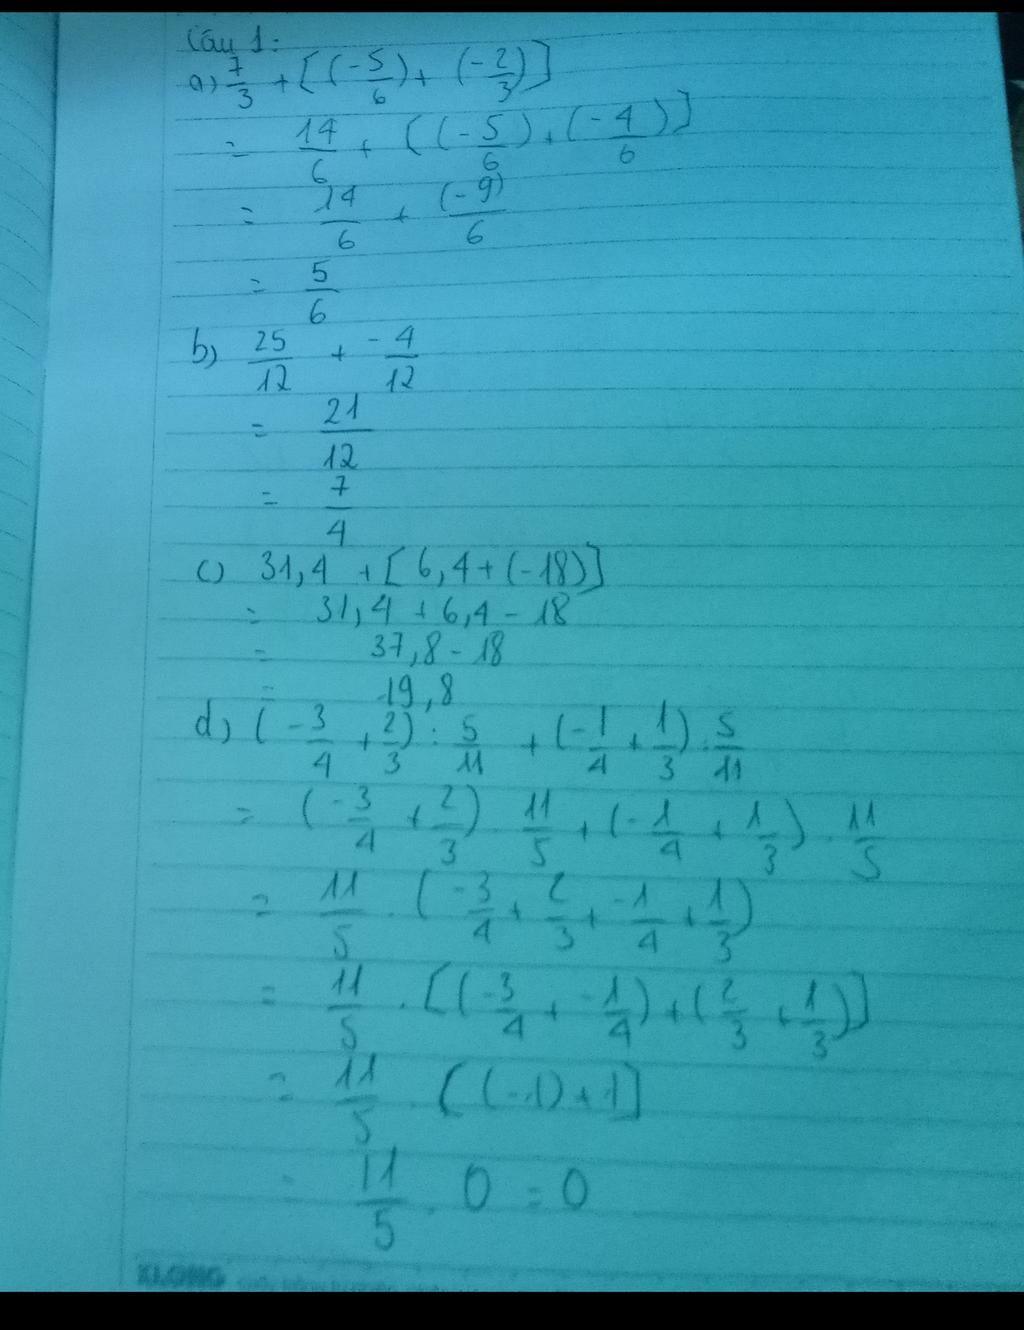 Câu 1:
a) 7/3 + [(-5/6) + (-2/3)]
= 14/6 + [(-5/6) + (-4/6)]
= 14/6 + (-9)/6
= 5/6
b) 25/12 + -4/12
= 21/12
= 7/4
c) 31,4 + [6,4 + (-18)]
= 31,4 + 6,4 - 18
= 37,8 - 18
= 19,8
d) (-3/4 + 2/3) : 5/11 + (-1/4 + 1/3) : 5/11
= (-3/4 + 2/3) . 11/5 + (-1/4 + 1/3) . 11/5
= 11/5 . (-3/4 + 2/3 + -1/4 + 1/3)
= 11/5 . [(-3/4 + -1/4) + (2/3 + 1/3)]
= 11/5 . [(-1) + 1]
= 11/5 . 0 = 0
KLONG